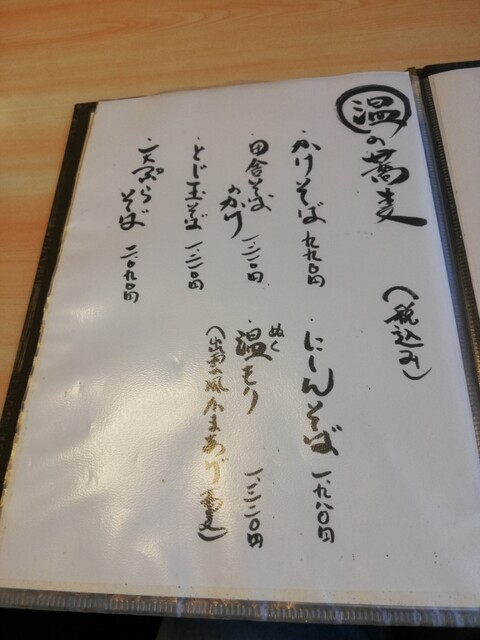 温の蕎麦
(税込み)
・かけそば 九九〇円
・にしんそば 一.九八〇円
・田舎そば
のかけ 一.二一〇円
ぬく
・温もり 一.三二〇円
(出雲風かまあげ蕎麦)
・とじ玉そば 一.二一〇円
・天ぷら
そば 二.〇九〇円